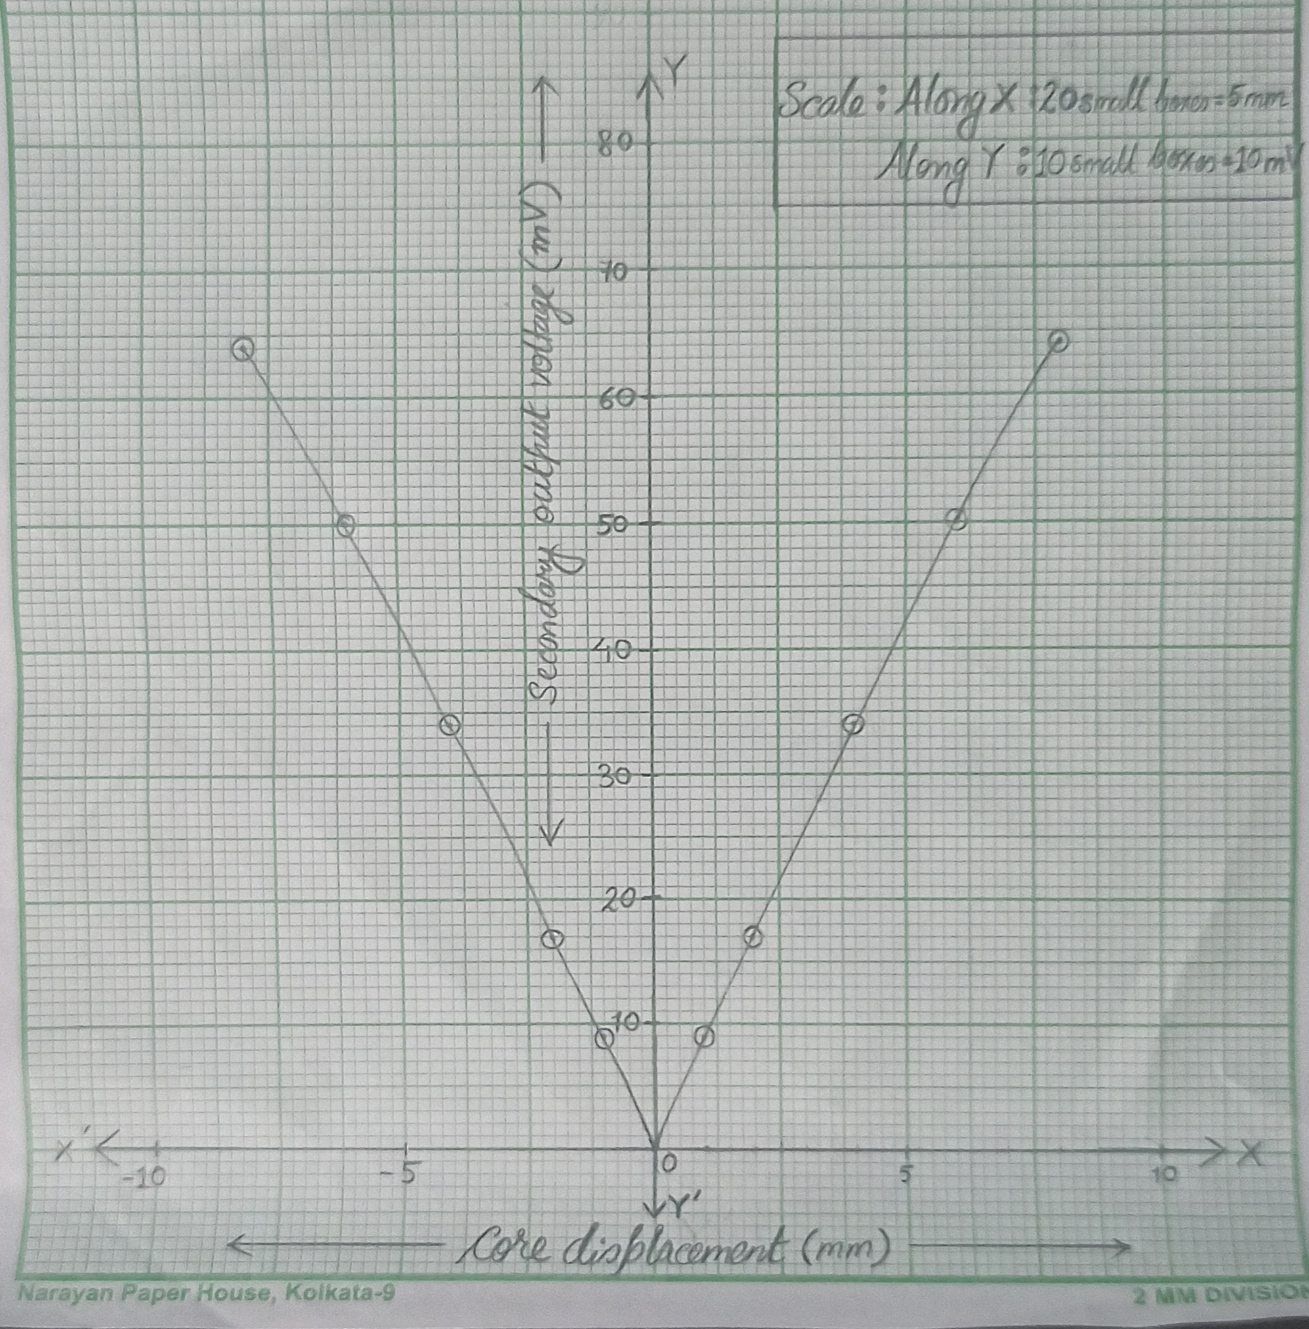 Y
Scale : Along X : 20 small boxes = 5mm
Along Y : 10 small boxes = 10mV
80
70
60
50
40
30
20
10
Secondary output voltage (mV)
X'
X
-10
-5
0
5
10
Y'
Core displacement (mm)
Narayan Paper House, Kolkata-9
2 MM DIVISION